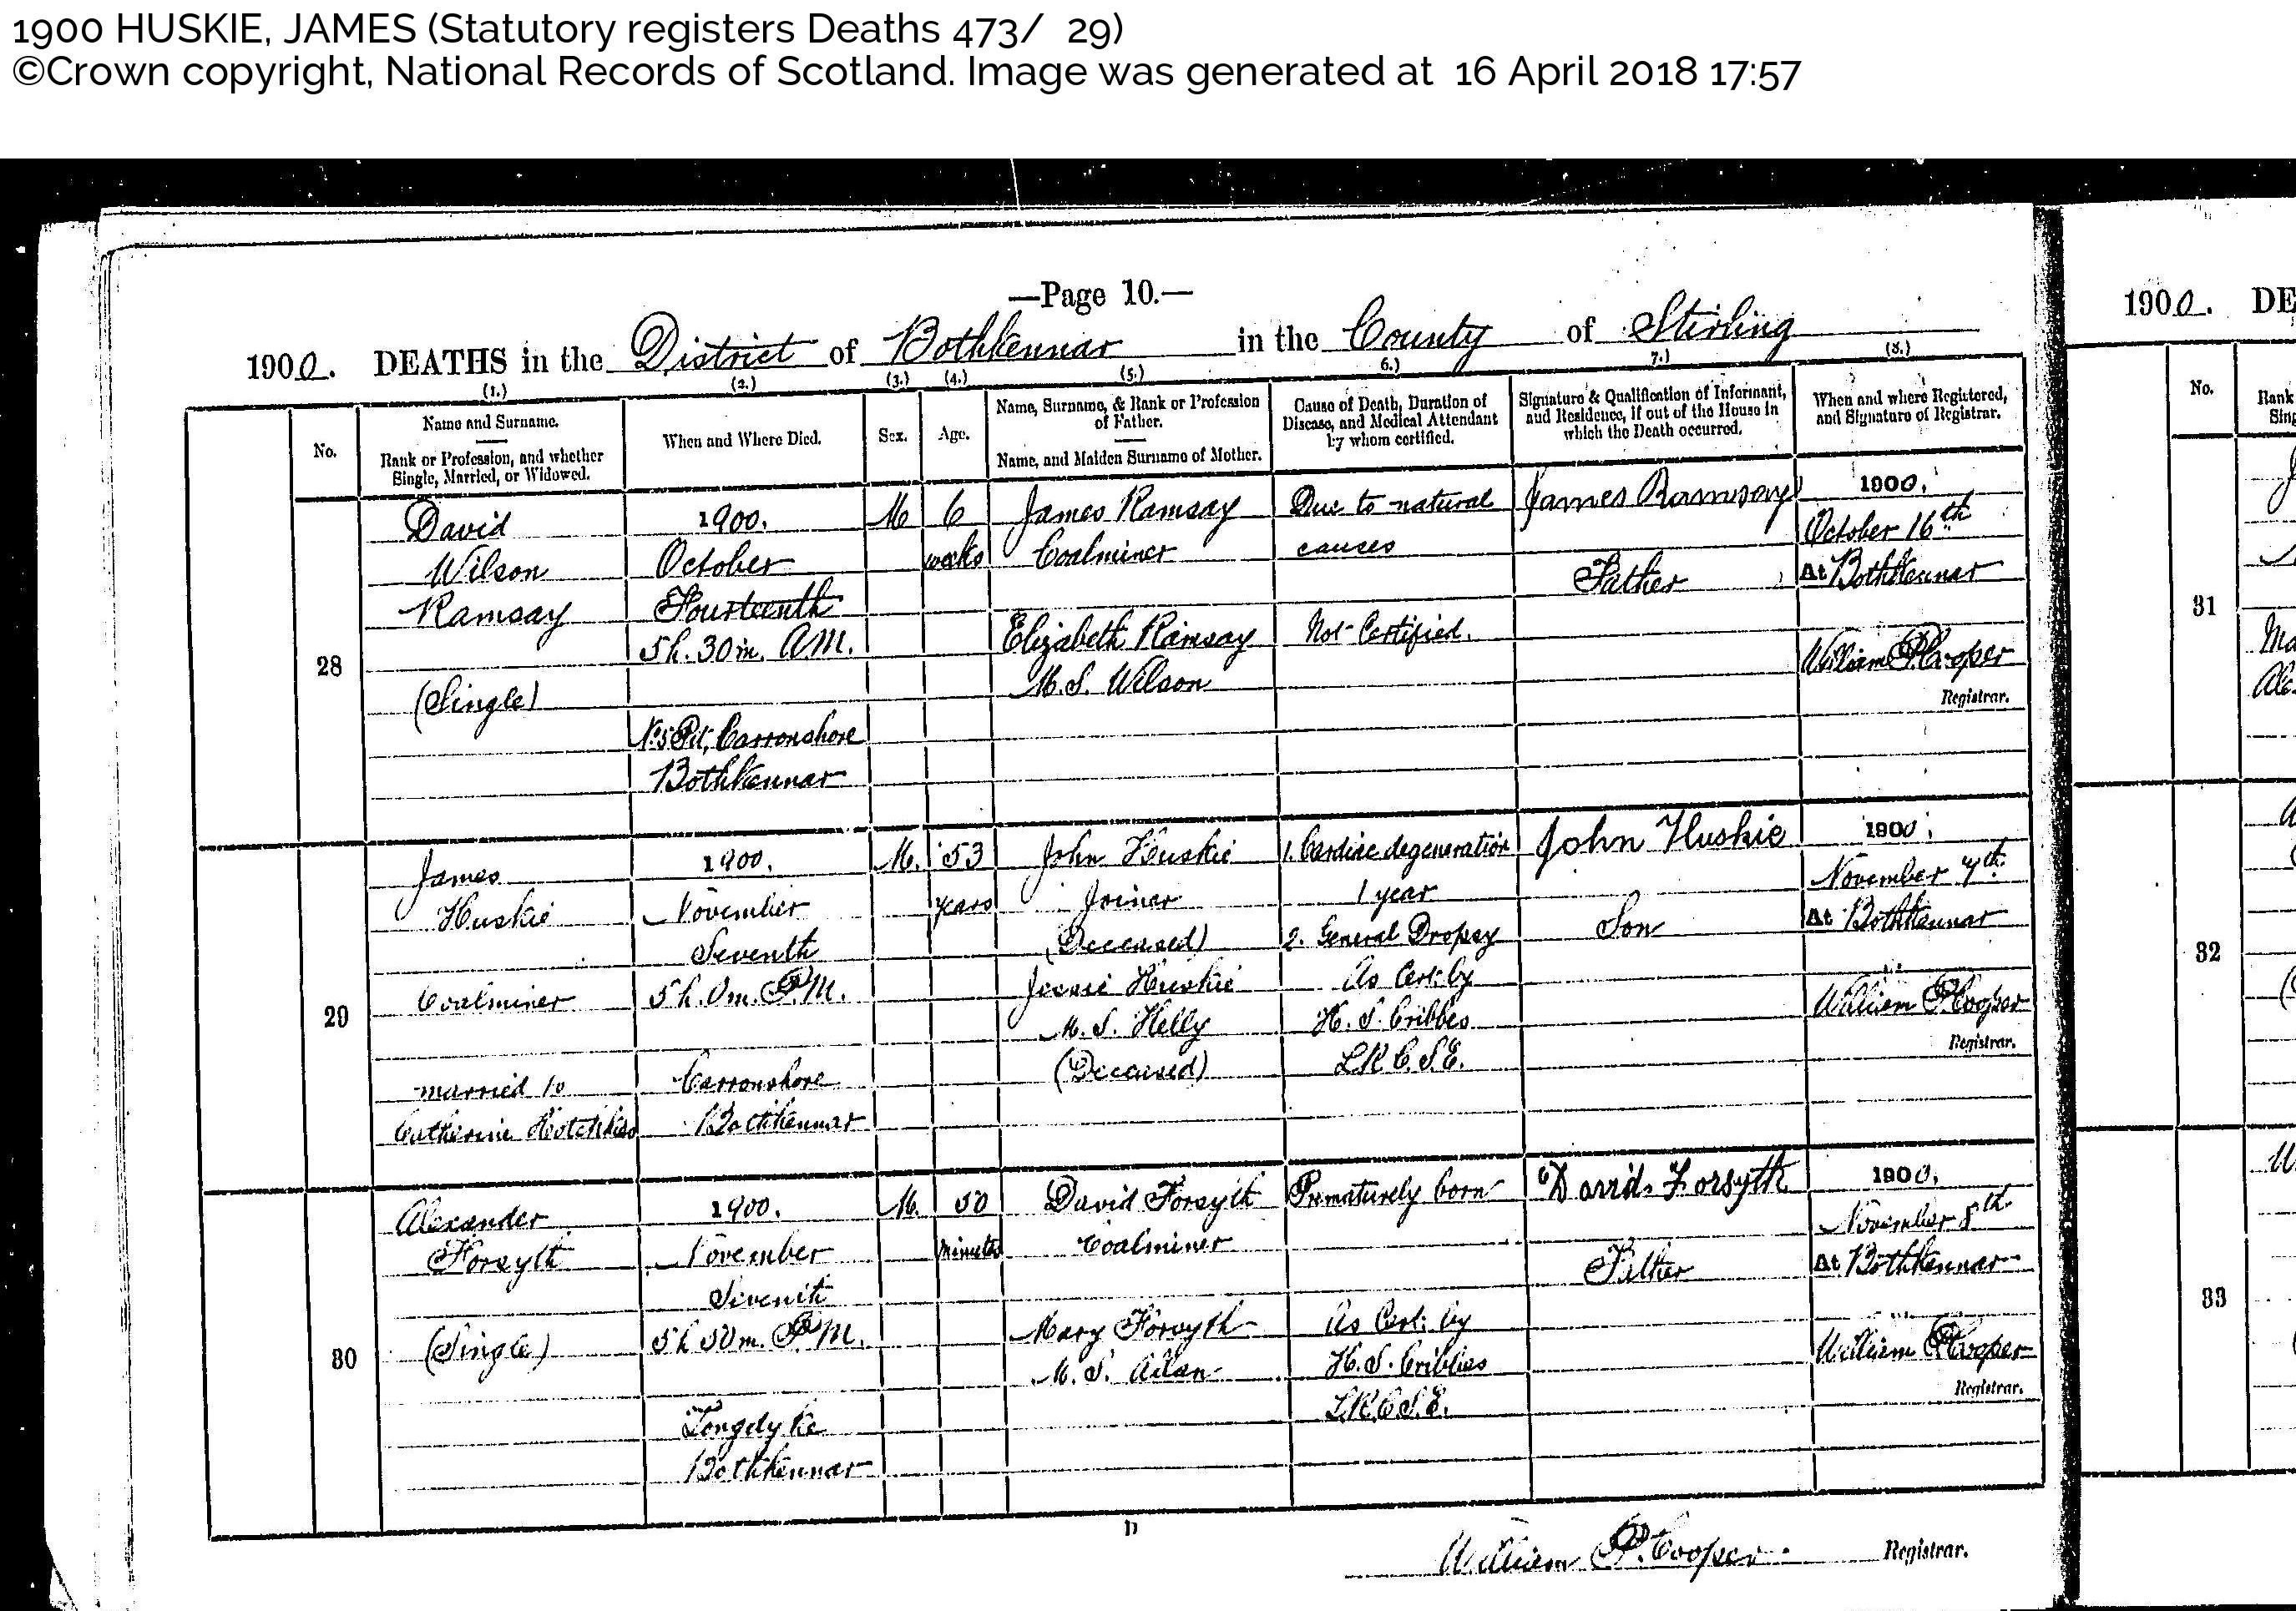 1900 HUSKIE, JAMES (Statutory registers Deaths 473/ 29)
©Crown copyright, National Records of Scotland. Image was generated at 16 April 2018 17:57
—Page 10.—
1900. DEATHS in the District of Bothkennar in the County of Stirling
(1.) (2.) (3.) (4.) (5.) 6.) 7.) (8.)
No.
Name and Surname.
Rank or Profession, and whether
Single, Married, or Widowed.
When and Where Died.
Sex.
Age.
Name, Surname, & Rank or Profession
of Father.
Name, and Maiden Surname of Mother.
Cause of Death, Duration of
Disease, and Medical Attendant
by whom certified.
Signature & Qualification of Informant,
and Residence, if out of the House in
which the Death occurred.
When and where Registered,
and Signature of Registrar.
28
David
Wilson
Ramsay
(Single)
1900.
October
Fourteenth
5h. 30m. A.M.
No 5 Pit, Carronshore
Bothkennar
M
6
weeks
James Ramsay
Coalminer
Elizabeth Ramsay
M.S. Wilson
Due to natural
causes
Not Certified.
James Ramsay
Father
1900.
October 16th
At Bothkennar
William P. Cooper
Registrar.
29
James
Huskie
Coalminer
married to
Catherine Hotchkiss
1900.
November
Seventh
5h. 0m. P.M.
Carronshore
Bothkennar
M.
53
years
John Huskie
Joiner
(Deceased)
Jessie Huskie
M.S. Helly
(Deceased)
1. Cardiac degeneration
1 year
2. General Dropsy
As Cert. by
H. S. Cribbes
L.R.C.S.E.
John Huskie
Son
1900.
November 7th
At Bothkennar
William P. Cooper
Registrar.
30
Alexander
Forsyth
(Single)
1900.
November
Seventh
5h 50m. P.M.
Longdyke
Bothkennar
M.
50
minutes
David Forsyth
Coalminer
Mary Forsyth
M.S. Allan
Prematurely born
As Cert. by
H. S. Cribbes
L.R.C.S.E.
David Forsyth
Father
1900.
November 8th
At Bothkennar
William P. Cooper
Registrar.
D
William P. Cooper. Registrar.
1900. DE
No.
Rank
Sing
31
32
33